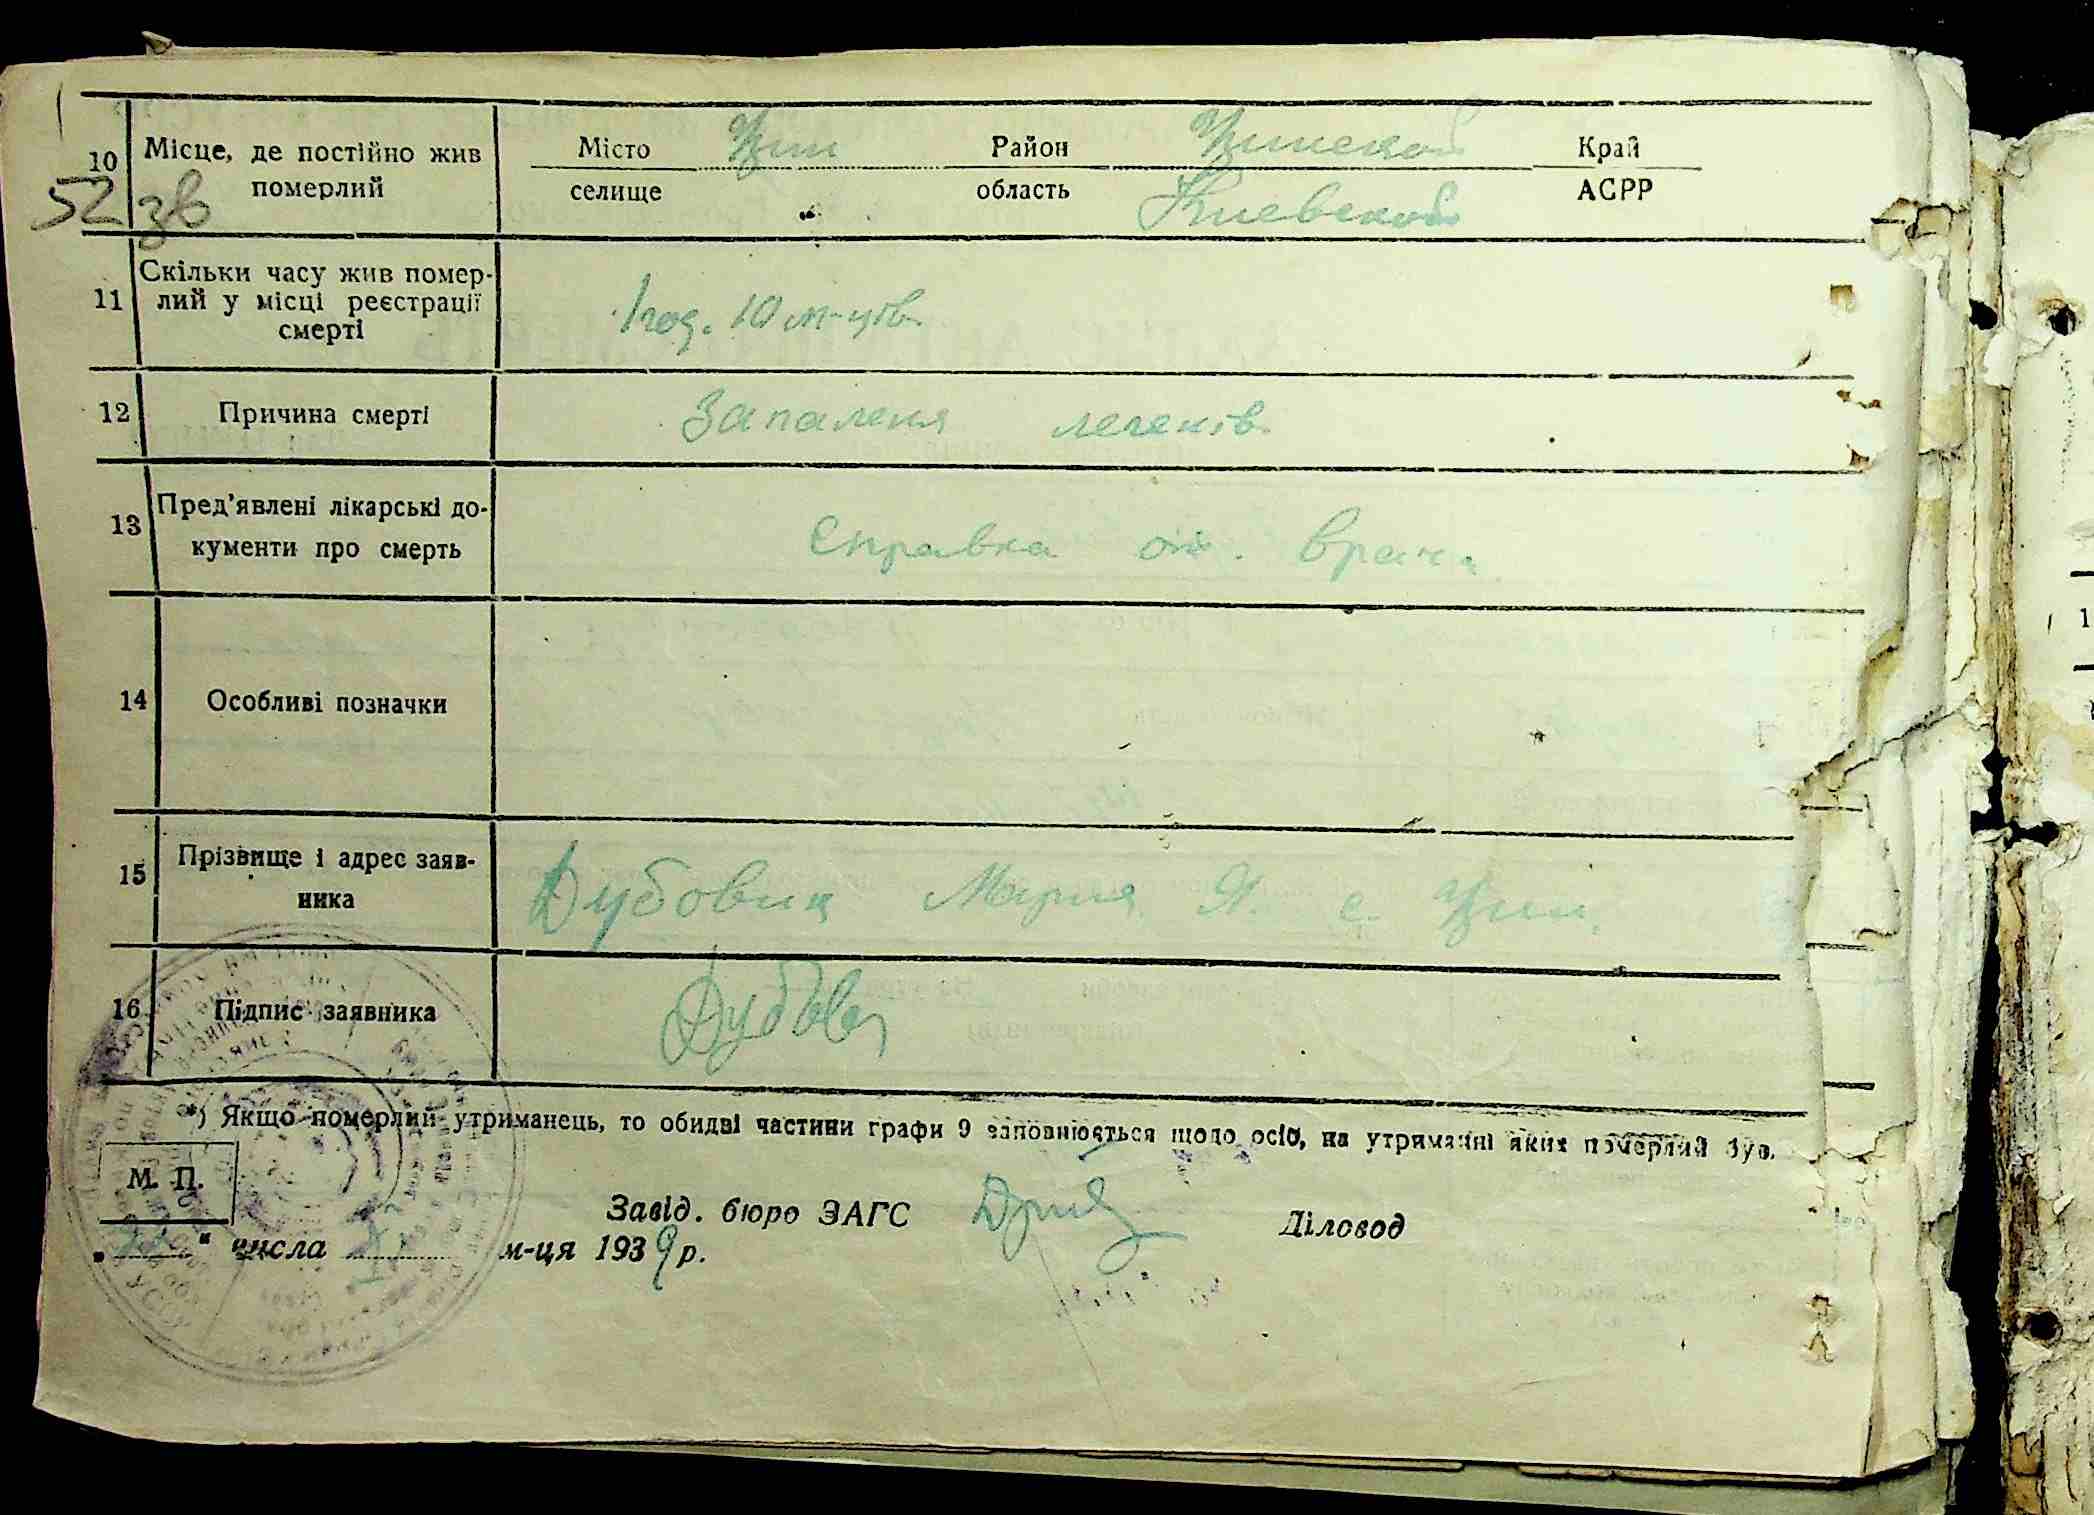 10 Місце, де постійно жив померлий
52 зв
Місто Узин Район Узинской Край
селище „ область Киевской АСРР
11 Скільки часу жив помер-
лий у місці реєстрації
смерті
1 год. 10 м-ців
12 Причина смерті Запаленя легенів
13 Пред'явлені лікарські до-
кументи про смерть
Справка от. врача
14 Особливі позначки
15 Прізвище і адрес заяв-
ника
Дубовик Мария Я. с. Узин.
16 Підпис заявника
*) Якщо померлий утриманець, то обидві частини графи 9 заповнюється щодо осіб, на утриманні яких померлий був.
М. П.
Завід. бюро ЗАГС Діловод
„ “ числа м-ця 1939 р.